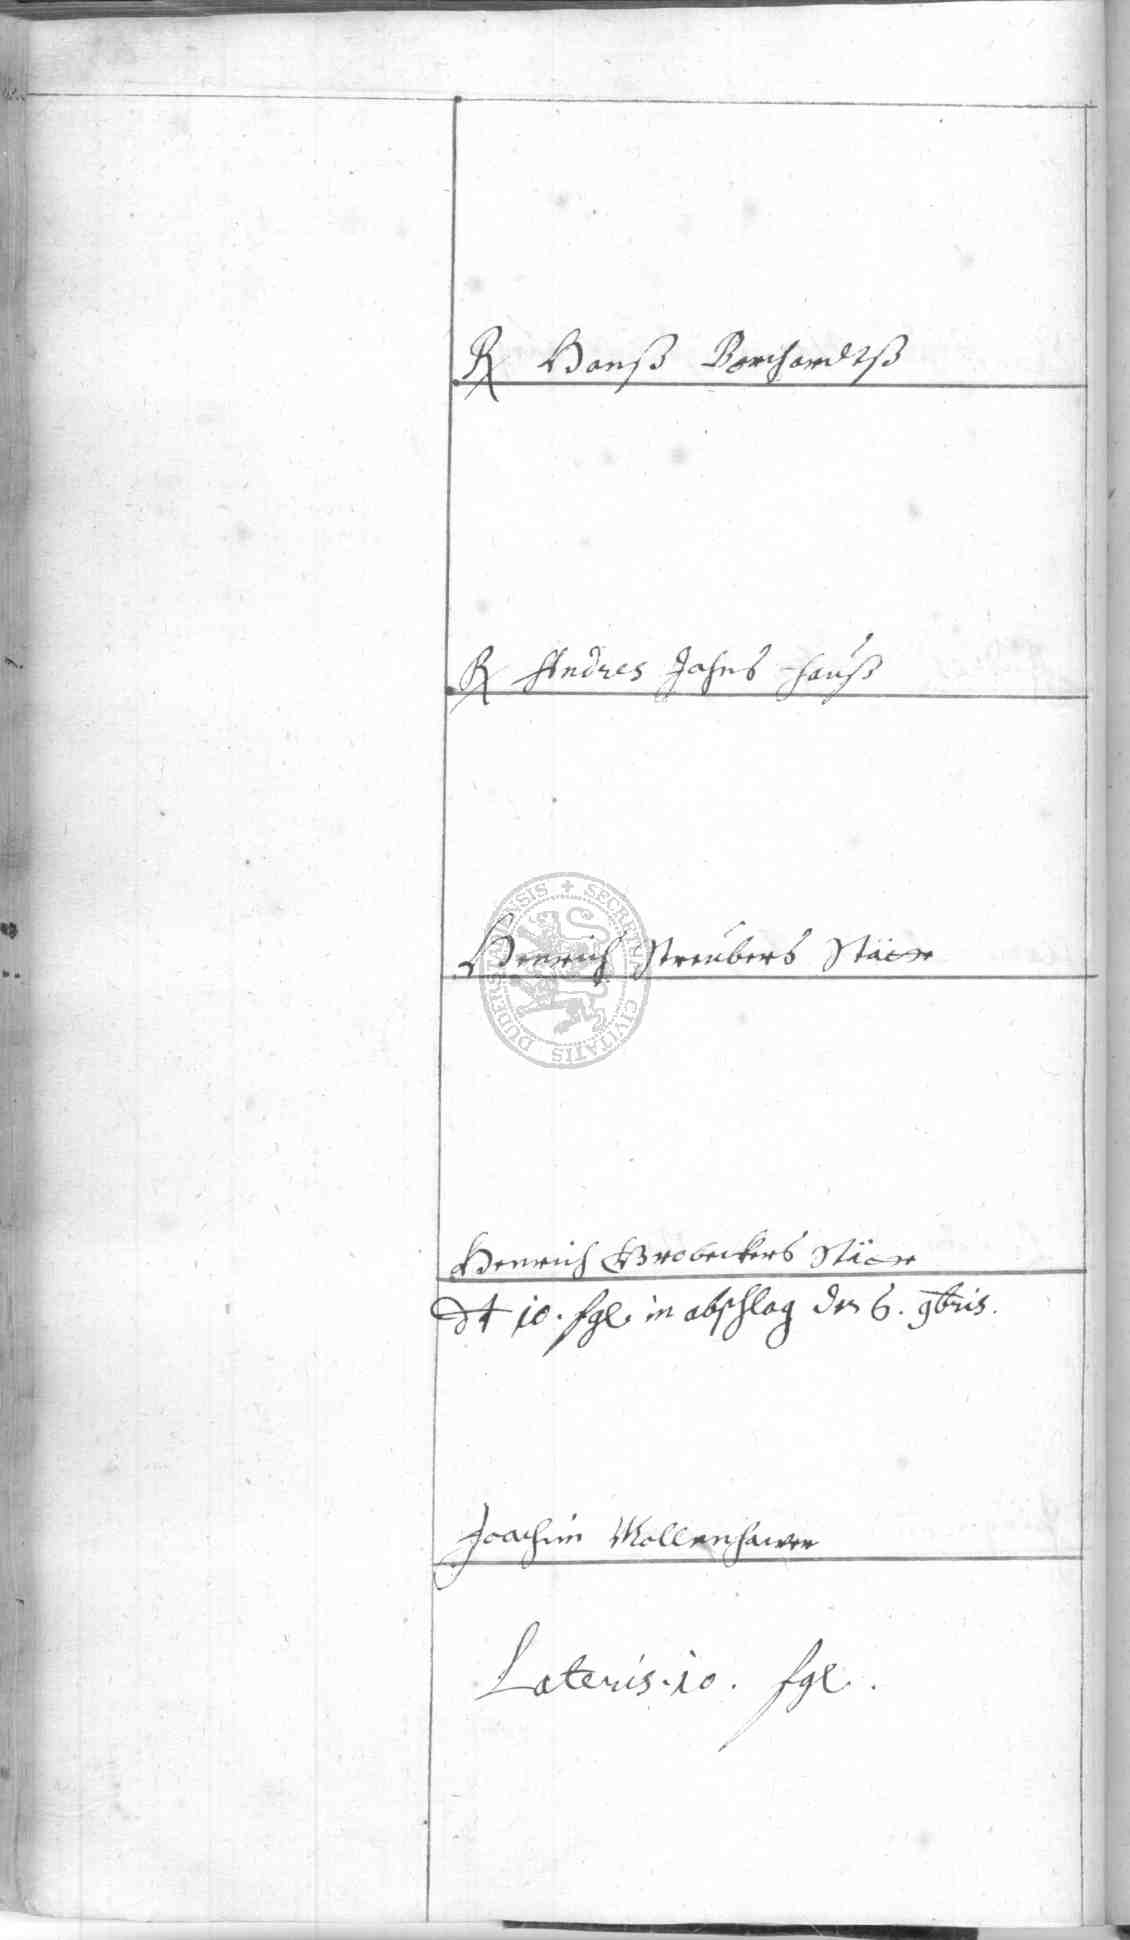 R Hanß Borchardtß
R Andres Jahns hauß
Henrich Streübers Stäte
Henrich Brobeckers Stäte
dt 10. fgl. in abschlag den 6. 9bris.
Joachim Mollenhawer
Lateris. 10. fgl.
SECRETVM CIVITATIS DUDERSTATENSIS